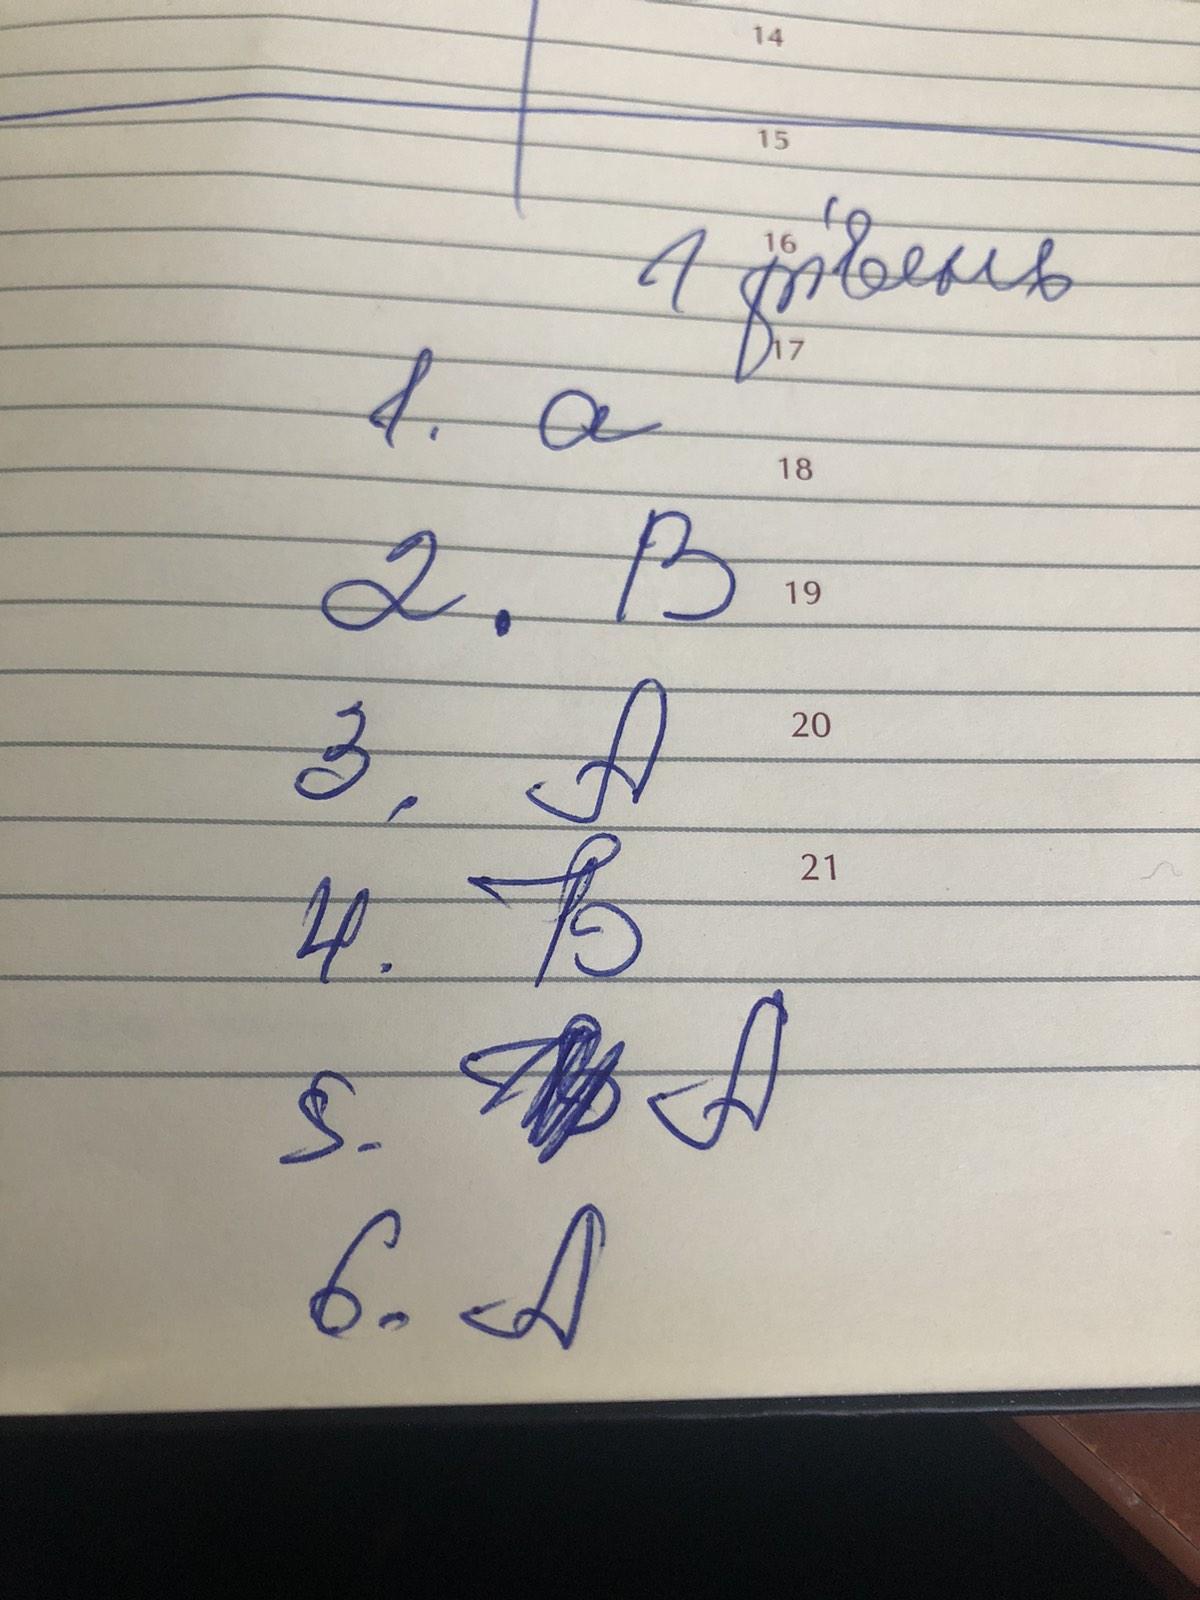 14
15
16
1 рівень
17
1. а
18
2. В
19
3. А
20
4. Б
21
5. А
6. А